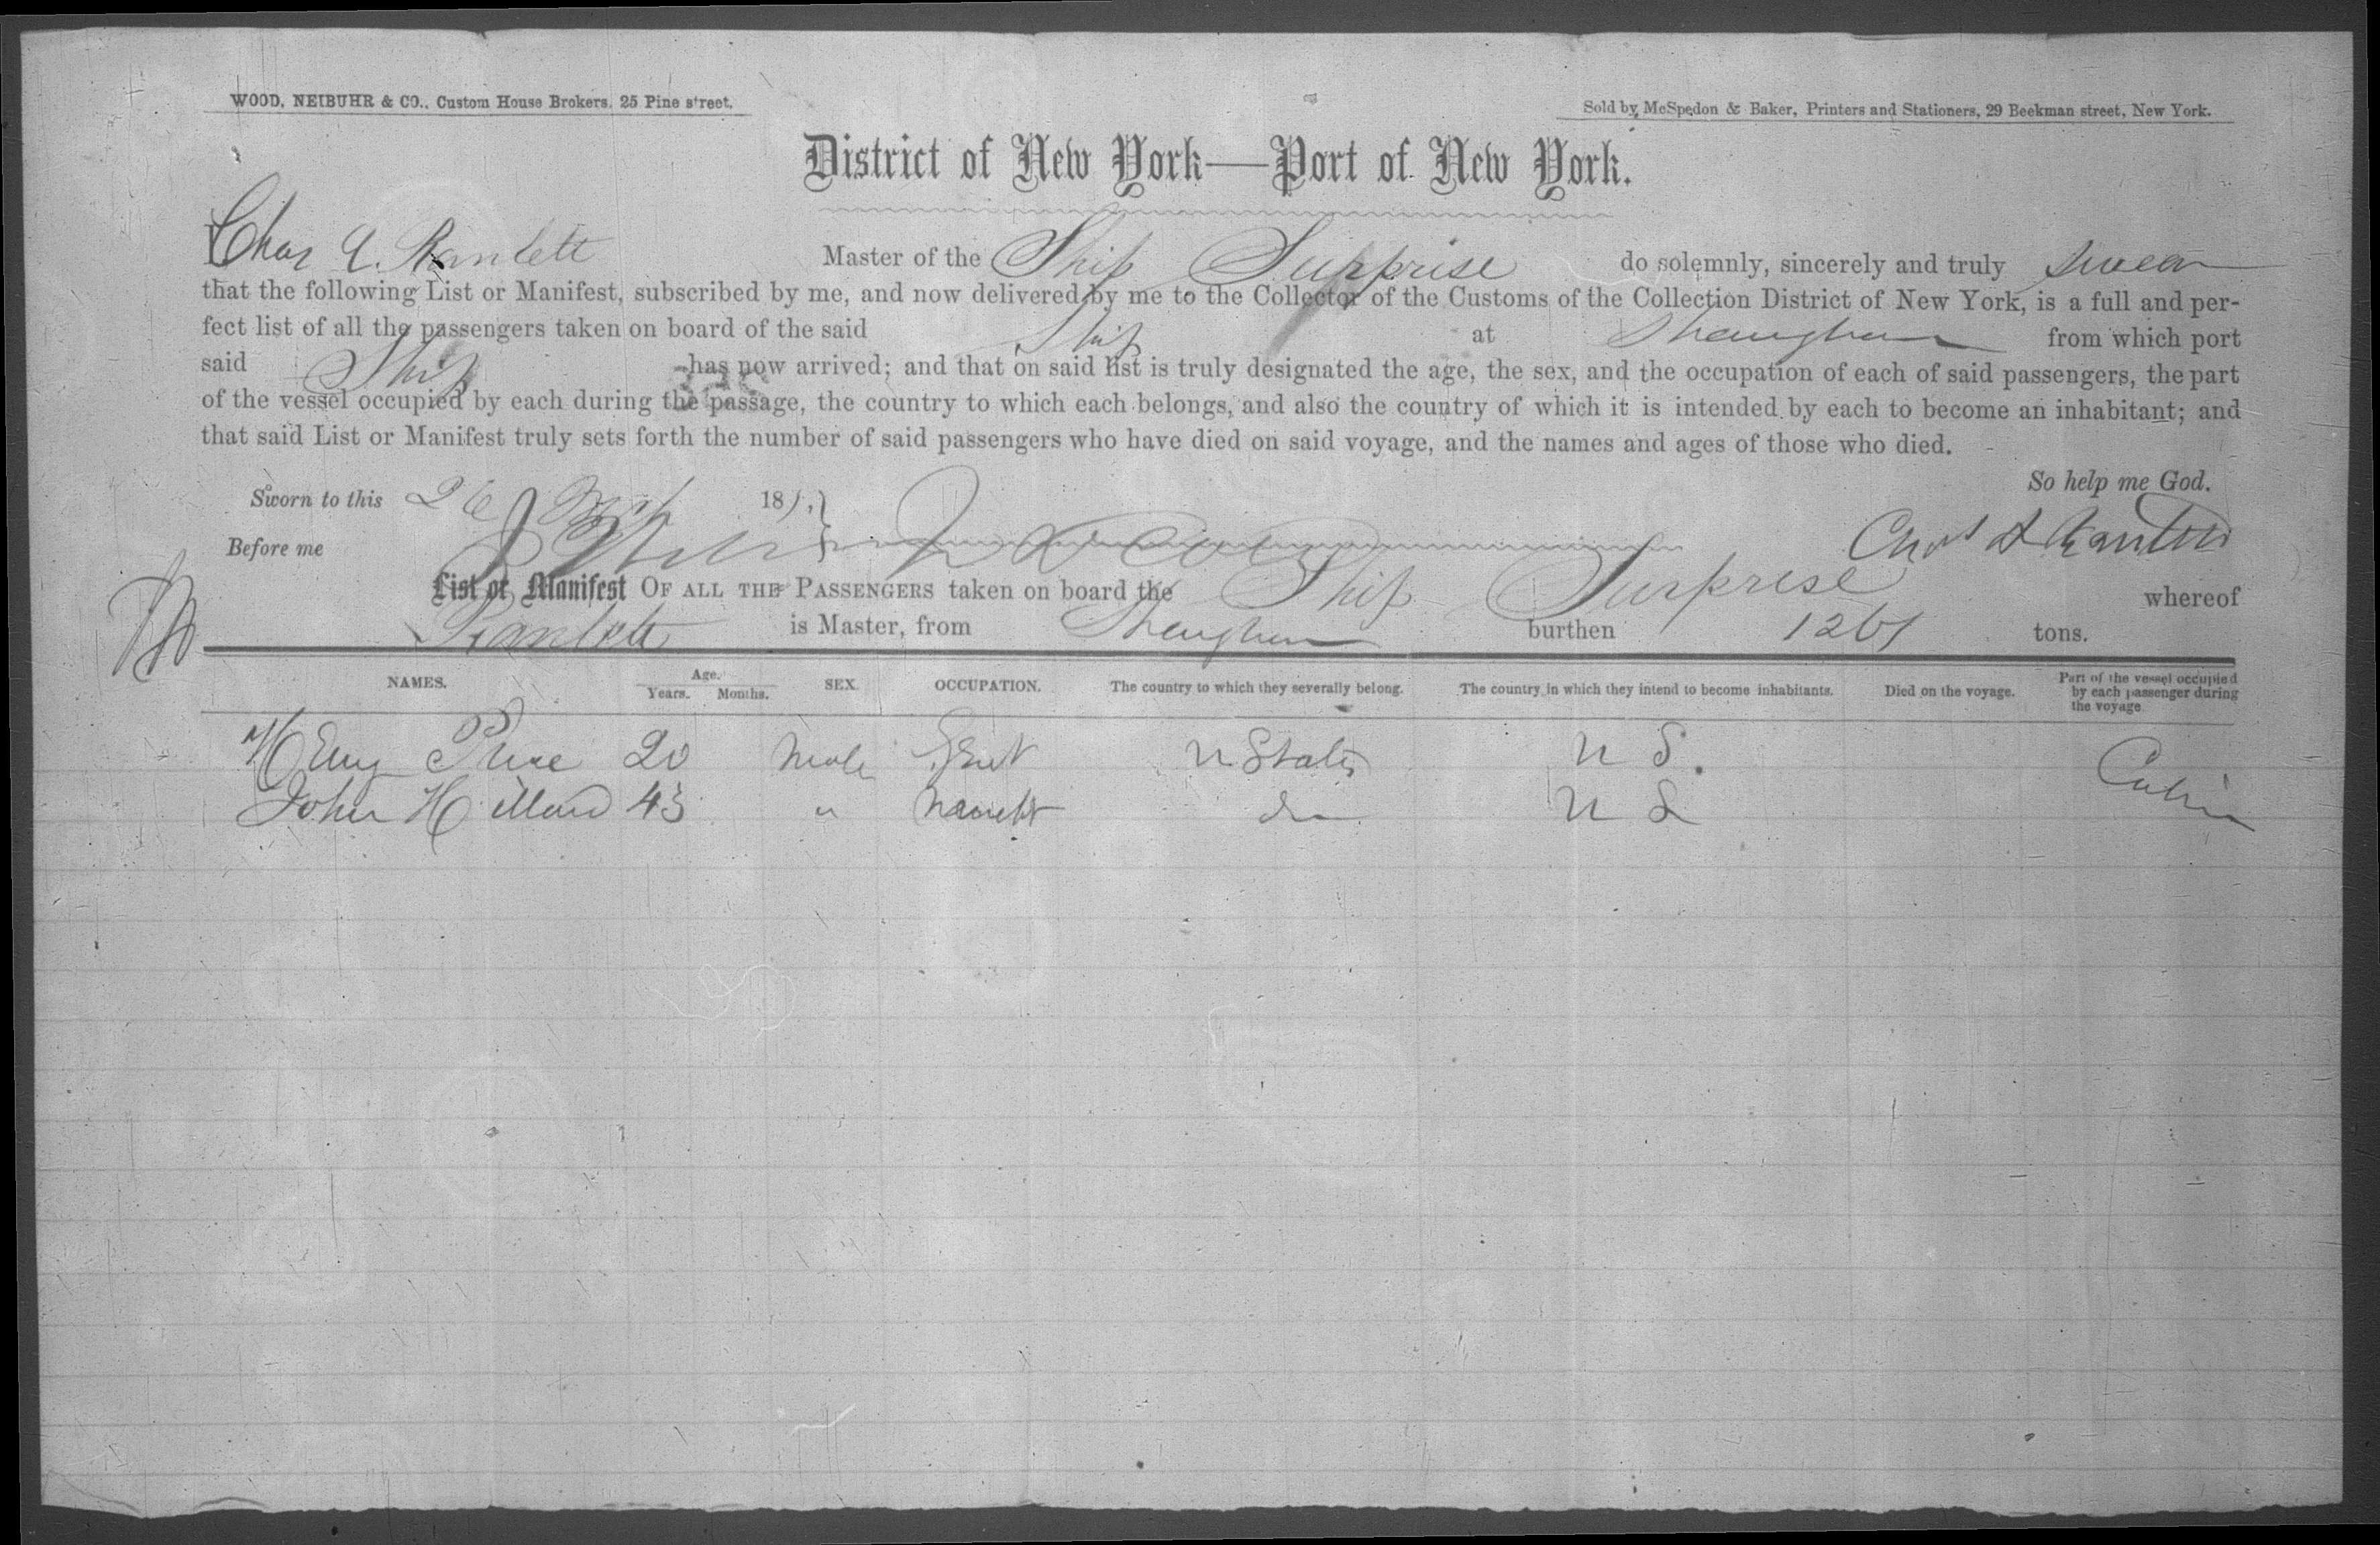 WOOD, NEIBUHR & CO., Custom House Brokers, 25 Pine street.
Sold by McSpedon & Baker, Printers and Stationers, 29 Beekman street, New York.
District of New York—Port of New York.
I Chas A. Ranlett Master of the Ship Surprise do solemnly, sincerely and truly swear
that the following List or Manifest, subscribed by me, and now delivered by me to the Collector of the Customs of the Collection District of New York, is a full and per-
fect list of all the passengers taken on board of the said Ship at Shanghae from which port
said Ship has now arrived; and that on said list is truly designated the age, the sex, and the occupation of each of said passengers, the part
of the vessel occupied by each during the passage, the country to which each belongs, and also the country of which it is intended by each to become an inhabitant; and
that said List or Manifest truly sets forth the number of said passengers who have died on said voyage, and the names and ages of those who died.
So help me God.
Sworn to this 26 18
Before me Chas A Ranlett
List or Manifest OF ALL THE PASSENGERS taken on board the Ship Surprise whereof
Ranlett is Master, from Shanghae burthen 1261 tons.
NAMES. Age. Years. Months. SEX. OCCUPATION. The country to which they severally belong. The country in which they intend to become inhabitants. Died on the voyage. Part of the vessel occupied by each passenger during the voyage
Henry 20 Male Gent U States U S. Cabin
John Hillard 43 " do U S